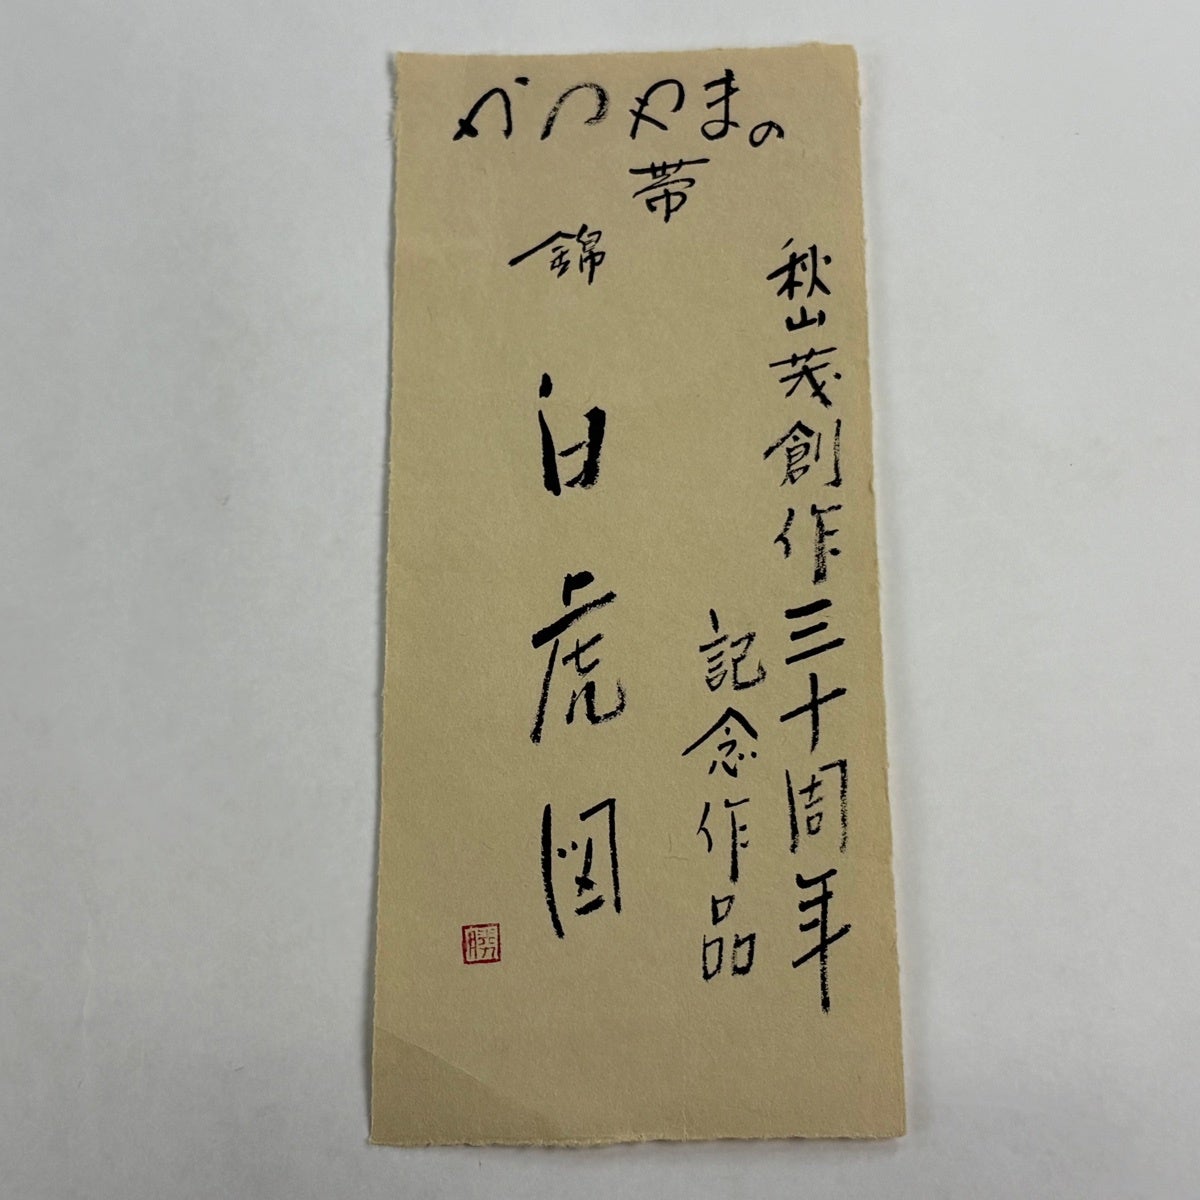 かつやまの
帯
秋山茂創作三十周年
記念作品
錦
白虎図
勝